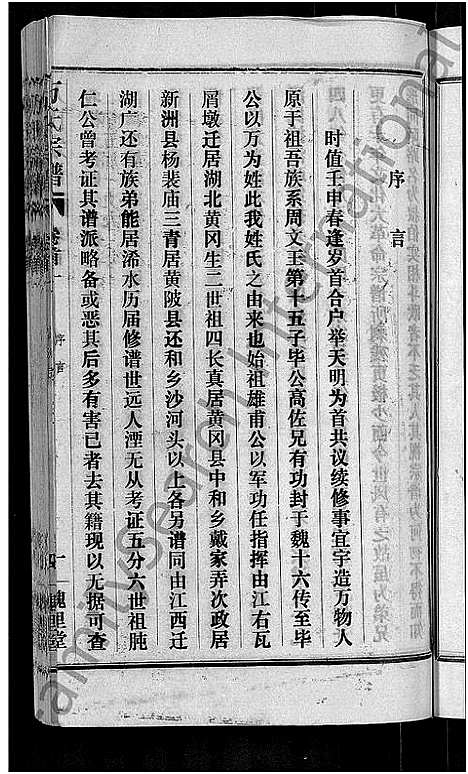 序言
时值壬申春逢岁首合户举天明为首共议续修事宜宇造万物人
原于祖吾族系周文王第十五子毕公高佐兄有功封于魏十六传至毕
公以万为姓此我姓氏之由来也始祖雄甫公以军功任指挥由江右瓦
屑墩迁居湖北黄冈生二世祖四长真居黄冈县中和乡戴家弄次政居
新洲县杨裴庙三青居黄陂县还和乡沙河头以上各另谱同由江西迁
湖广还有族弟能居浠水历届修谱世远人湮无从考证五分六世祖肫
仁公曾考证其谱派略备或恶其后多有害已者去其籍现以无据可查
万氏宗谱
卷首一
序言
四一
槐里堂
FamilySearch International